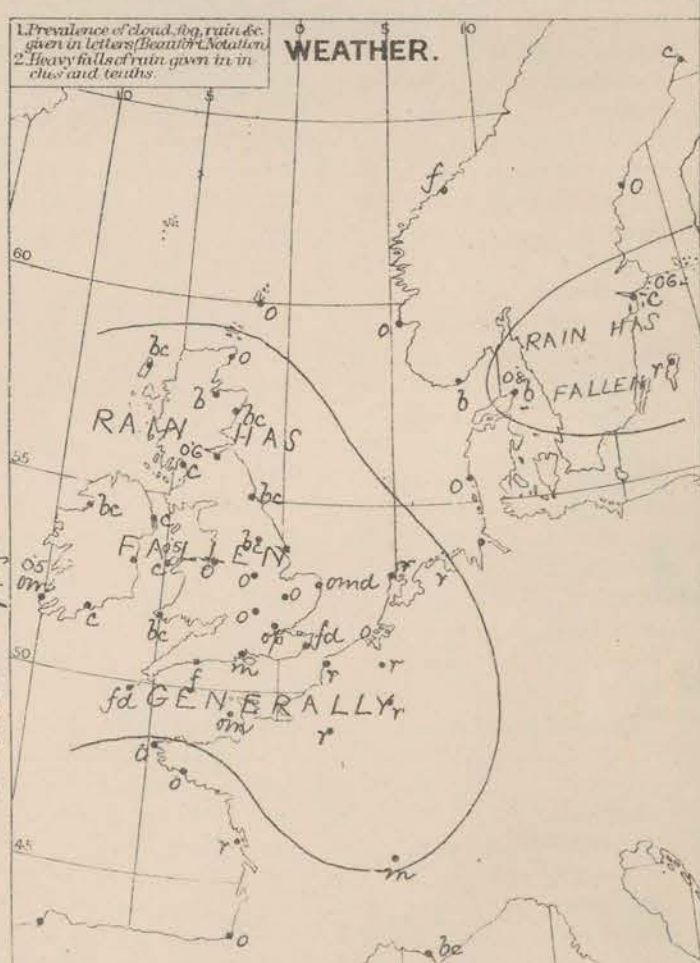 1. Prevalence of cloud, fog, rain &c.
given in letters (Beaufort Notation)
2. Heavy falls of rain given in in
ches and tenths.
WEATHER.
0
5
10
10
5
c
f
o
60
o
o
0·6
c
RAIN HAS
r
FALLEN
0·8
b
b
bc
o
b
bc
RAIN HAS
0·6
c
55
bc
bc
c
o
FALLEN
bc
0·5
c
o
r
r
0·5
om
o
o
omd
c
bc
o
op
fd
o
m
r
r
50
f
fd
GENERALLY
r
om
r
o
o
45
r
m
o
bc